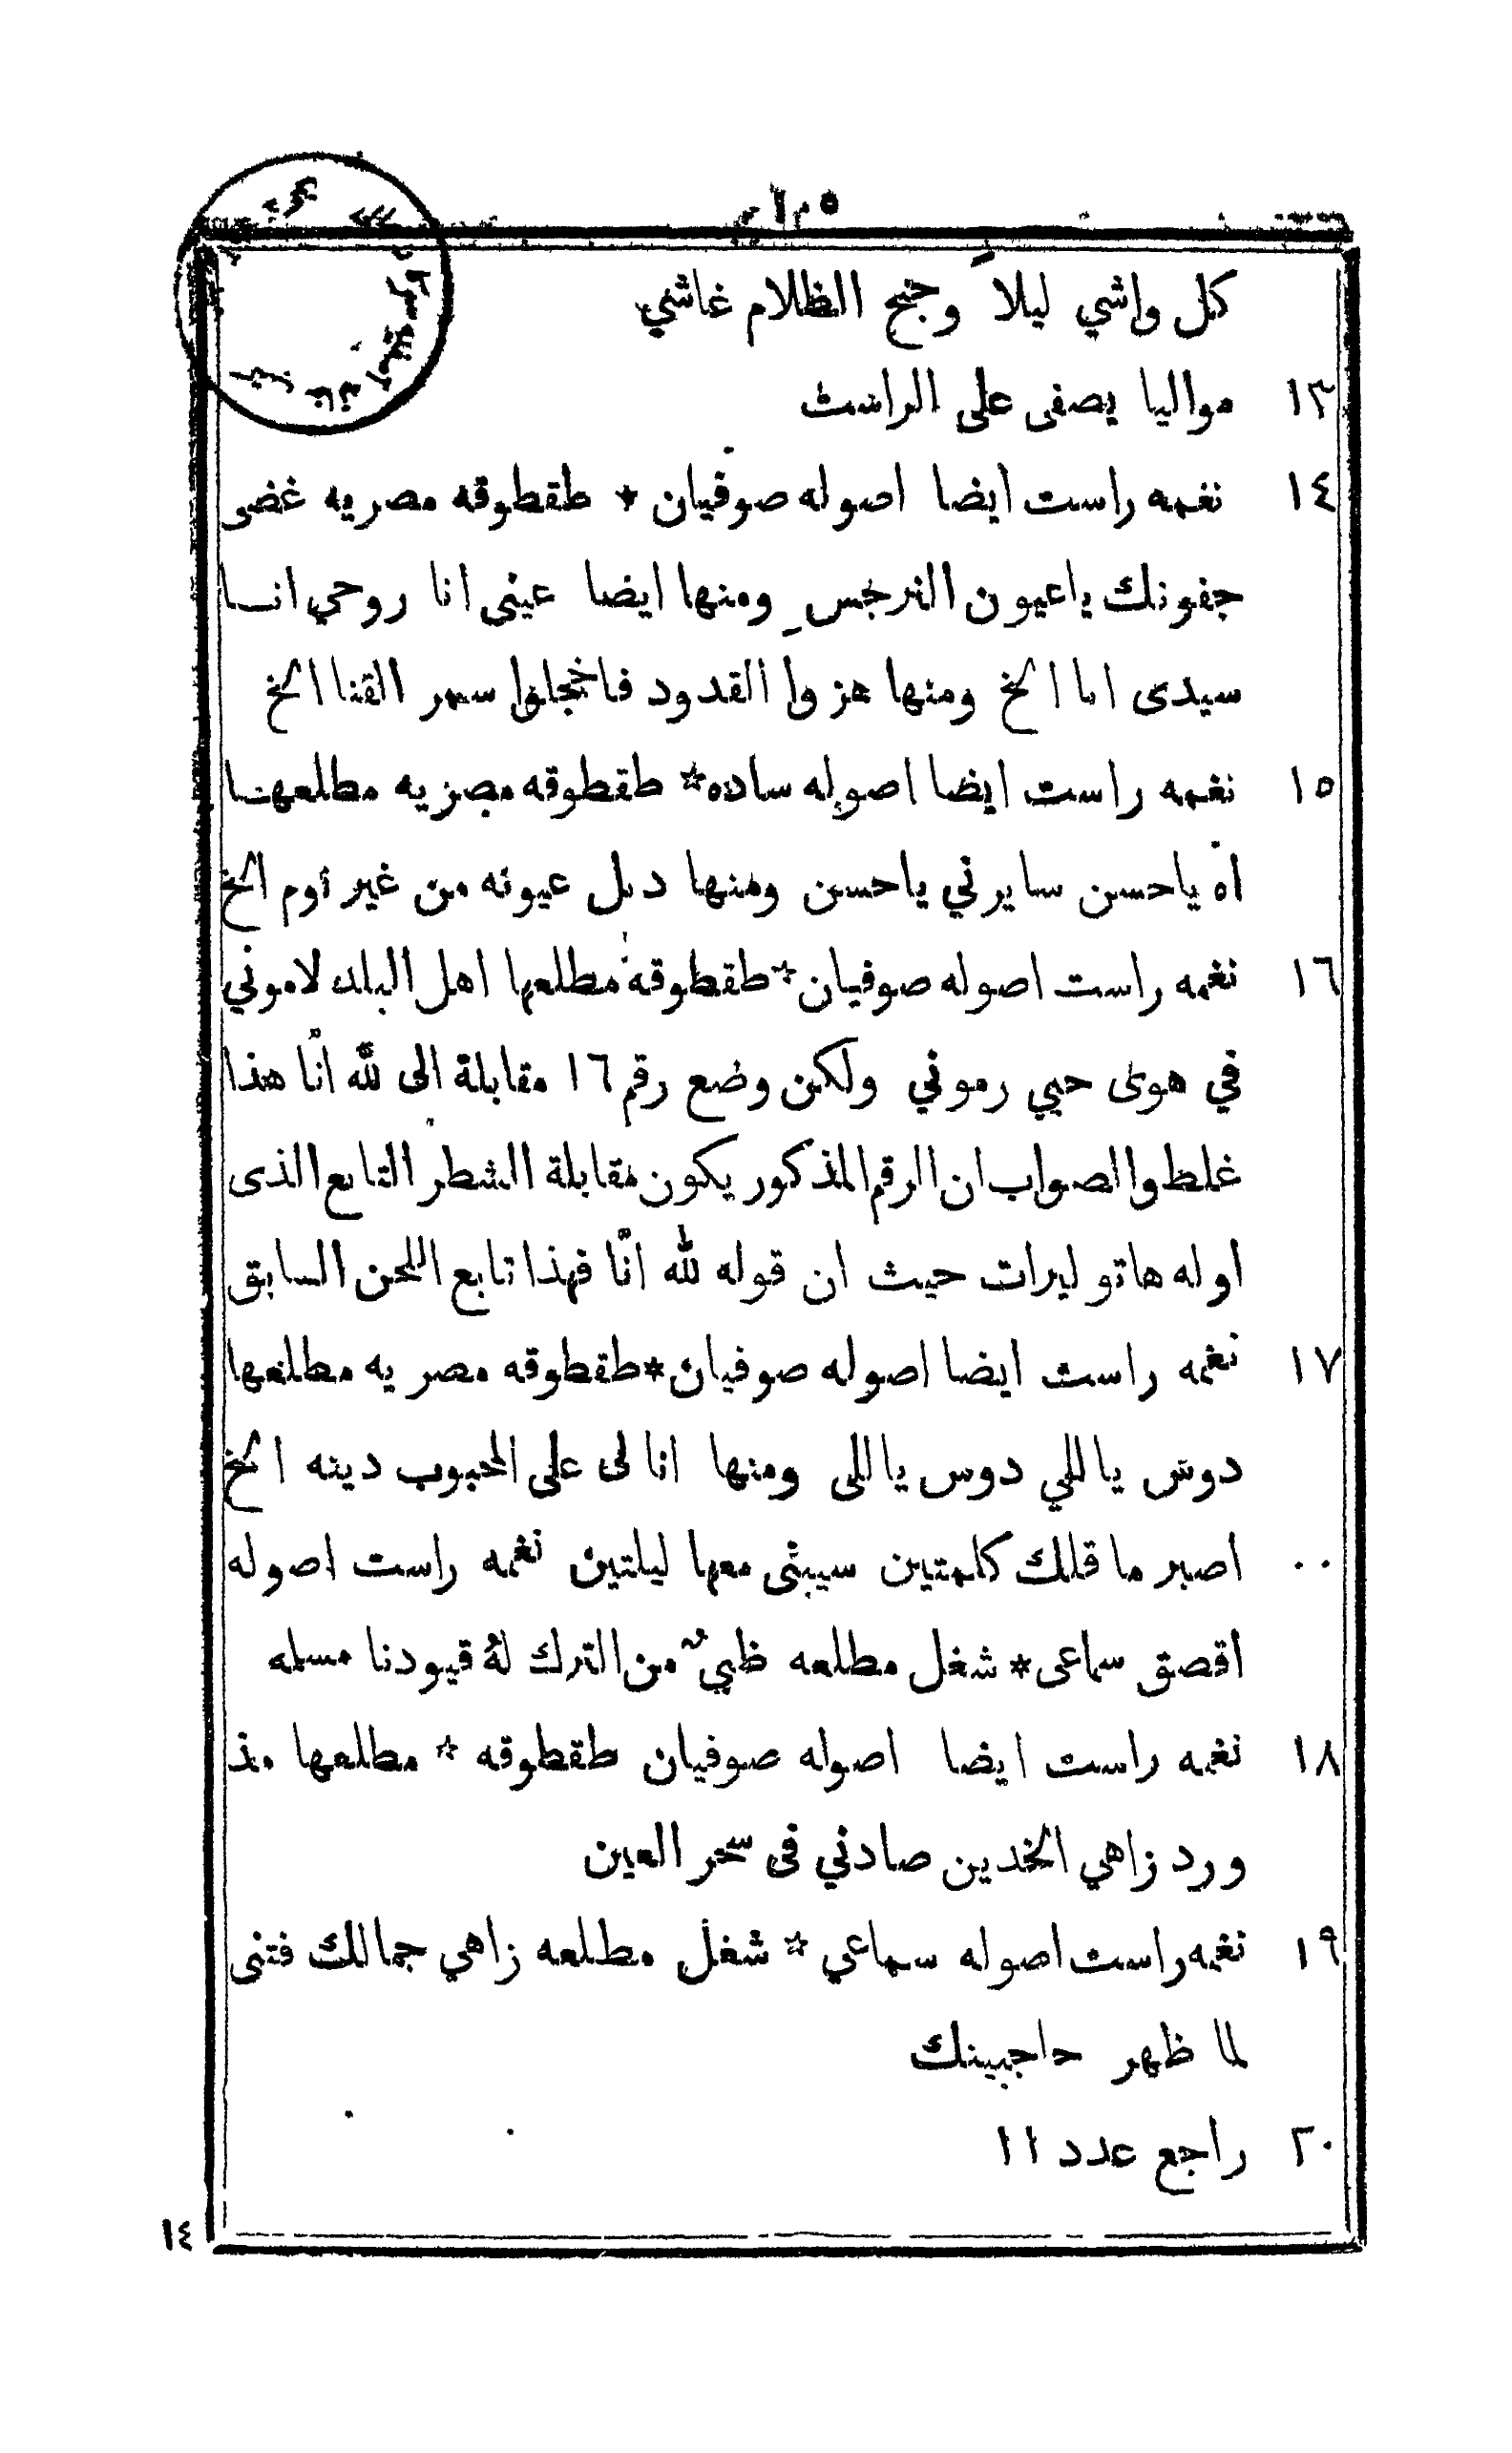 كل واشي ليلاً وجنح الظلام غاشي
١٣ مواليا يصفى على الراست
١٤ نغمه راست ايضا اصوله صوفيان * طقطوقه مصريه غضى
جفونك ياعيون النرجس ومنها ايضا عينى انا روحي انا
سيدى انا الخ ومنها هزوا القدود فاخجلوا سمر القنا الخ
١٥ نغمه راست ايضا اصوله ساده * طقطوقه مصريه مطلعها
اه ياحسن سايرني ياحسن ومنها دبل عيونه من غير نوم الخ
١٦ نغمه راست اصوله صوفيان * طقطوقه مطلعها اهل البلد لاموني
في هوى حبي رموني ولكن وضع رقم ١٦ مقابلة الى لله انّا هذا
غلط والصواب ان الرقم المذكور يكون مقابلة الشطر التابع الذى
اوله هاتو ليرات حيث ان قوله لله انّا فهذا تابع اللحن السابق
١٧ نغمه راست ايضا اصوله صوفيان * طقطوقه مصريه مطلعها
دوس ياللي دوس ياللى ومنها انا لى على المحبوب دينه الخ
٠٠ اصبر ما قللك كلمتين سيبنى معها ليلتين نغمه راست اصوله
اقصق سماعى * شغل مطلعه ظبيٌ من الترك لهُ قيودنا مسلمه
١٨ نغمه راست ايضا اصوله صوفيان طقطوقه * مطلعها مذ
ورد زاهي الخدين صادني فى سحر العين
١٩ نغمه راست اصوله سماعي * شغل مطلعه زاهي جمالك فتنى
لما ظهر حاجبينك
٢٠ راجع عدد ١١
١٤